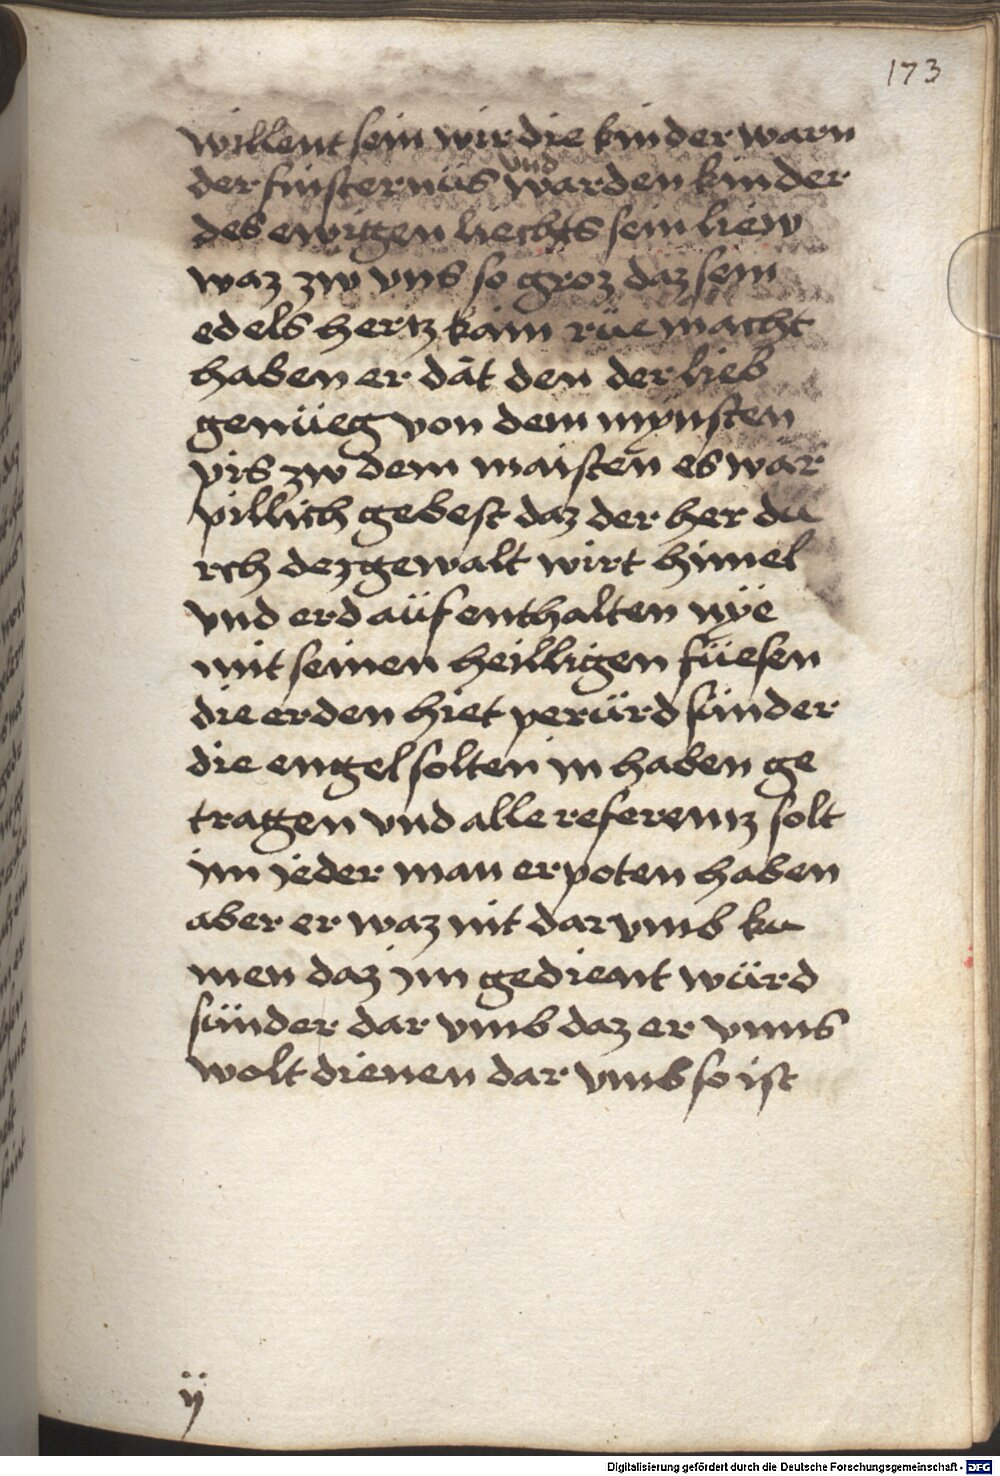 173
willent sein wir die kinder warn
und
der finsternüs warden kinder
des ewigen liechts sein liew
waz zw vns so groz daz sein
edels hertz kam rüe macht
haben er dät den der lieb
genüeg von dem mynsten
vis zw dem maisten es wär
pillich gebest daz der her du
rch dez gewalt wirt himel
vnd erd aüfenthalten nÿe
mit seinen heilligen füesen
die erden hiet perürd sünder
die engel solten in haben ge
tragen vnd alle referentz solt
im jeder man erpoten haben
aber er waz nit dar vmb ku
men daz im gedient würd
sünder dar vmb daz er vnns
wolt dienen dar vmb so ist
ÿ
Digitalisierung gefördert durch die Deutsche Forschungsgemeinschaft - DFG